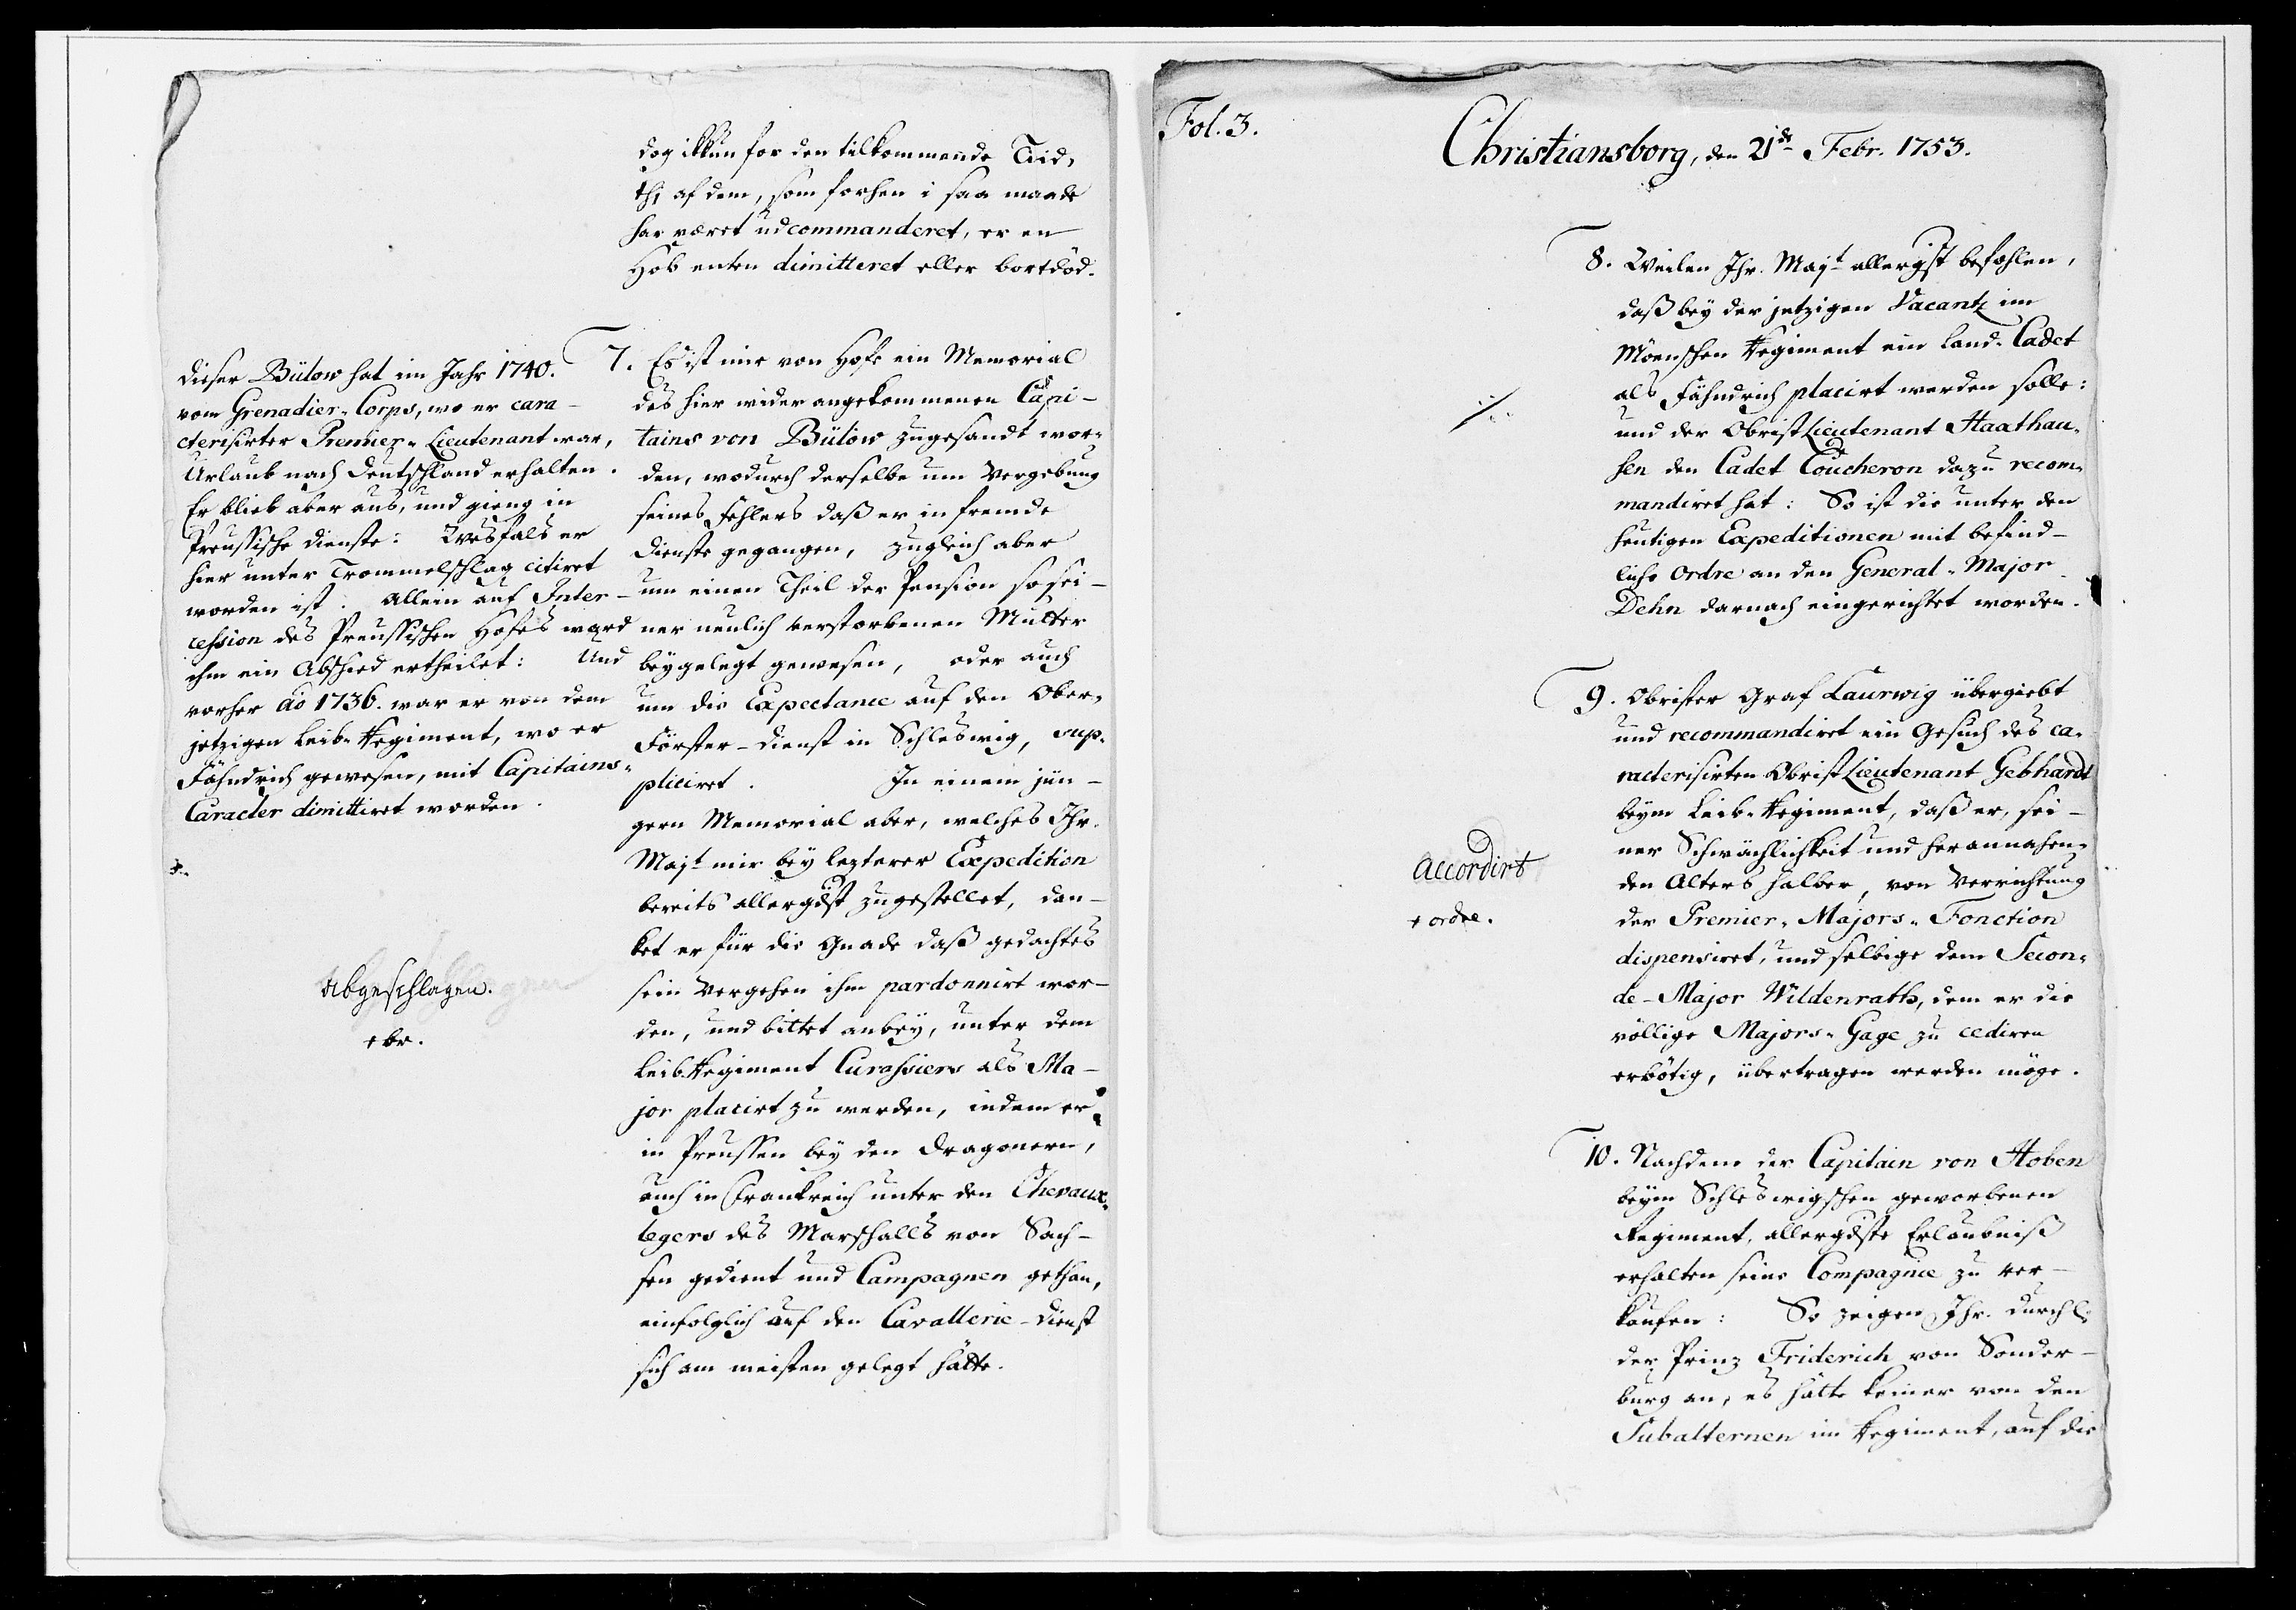 dog ikkun for den tilkommende Tiid,
thi af dem, som forhen i saa maade
har været udcommanderet, er en
Hob enten dimitteret eller bortdöd.
7. Es ist mir von Hofe ein Memorial
des hier wider angekommenen Capi-
tains von Bülow zugesandt wor-
den, wodurch derselbe um Vergebung
seines Fehlers daß er in fremde
Dienste gegangen, zugleich aber
um einen Theil der Pension so sei-
ner neulich verstorbenen Mutter
beygelegt gewesen, oder auch
um die Expectance auf den Ober-
Förster-Dienst in Schleswig, sup-
pliciret. In einem jün-
gern Memorial aber, welches Ihr.
Majt mir bey lezterer Expedition
bereits allergdst zugestellet, dan-
ket er für die Gnade daß gedachtes
sein Vergehen ihm pardonnirt wor-
den, und bittet anbey, unter dem
Leib-Regiment Curassiers als Ma-
jor placirt zu werden, indem er
in Preussen bey den Dragonern,
auch in Frankreich unter den Chevaux
legers des Marschalls von Sach-
sen gedient und Campagnen gethan,
einfolglich auf den Cavallerie-Dienst
sich am meisten gelegt hätte.
Dieser Bülow hat im Jahr 1740.
vom Grenadier-Corps, wo er cara-
cterisirter Premier-Lieutenant war,
Urlaub nach Deutschland erhalten.
Er blieb aber aus, und gieng in
Preussische Dienste: Wesfals er
hier unter Trommelschlag citiret
worden ist. Allein auf Inter-
cession des Preussischen Hofes ward
ihm ein Abschied ertheilet: Und
vorher ao 1736. war er von dem
jetzigen Leib-Regiment, wo er
Fähndrich gewesen, mit Capitains-
Caracter dimittiret worden.
Abgeschlagen.
+ br.
Fol. 3.
Christiansborg, den 21de Febr. 1753.
8. Weilen Ihr. Majt allergst befohlen,
daß bey der jetzigen Vacantz im
Möenschen Regiment ein Land-Cadet
als Fähndrich placirt werden solle:
und der ObristLieutenant Haxthau-
sen den Cadet Coucheron dazu recom-
mandiret hat: So ist die unter den
heutigen Expeditionen mit befind-
liche Ordre an den General-Major
Dehn darnach eingerichtet worden.
9. Obrister Graf Laurwig übergiebt
und recommandiret ein Gesuch des ca-
racterisirten ObristLieutenant Gebhardt
beym Leib-Regiment, daß er, sei-
ner Schwächlichkeit und herannahen-
den Alters halber, von Verrichtung
der Premier-Majors-Fonction
dispensiret, und selbige dem Secon-
de-Major Wildenrath, dem er die
völlige Majors-Gage zu cediren
erbötig, übertragen werden möge.
Accordirt
+ ordre.
10. Nachdem der Capitain von Hoben
beym Schleswigschen geworbenen
Regiment, allergdste Erlaubniß
erhalten seine Compagnie zu ver-
kaufen: So zeigen Ihr. Durchl.
der Prinz Friderich von Sonder-
burg an, es hätte keiner von den
Subalternen im Regiment, auf die